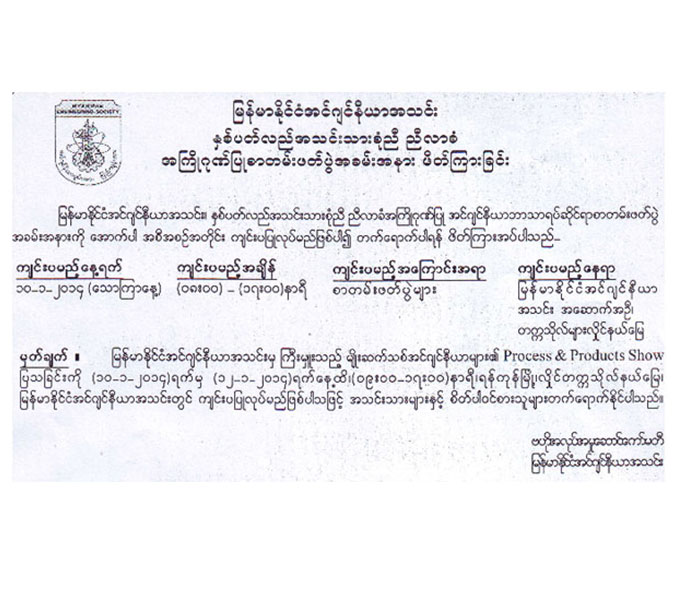 MYANMAR
ENGINEERING SOCIETY
မြန်မာနိုင်ငံအင်ဂျင်နီယာအသင်း
နှစ်ပတ်လည်အသင်းသားစုံညီ ညီလာခံ
အကြိုဂုဏ်ပြုစာတမ်းဖတ်ပွဲအခမ်းအနား ဖိတ်ကြားခြင်း
မြန်မာနိုင်ငံအင်ဂျင်နီယာအသင်း၊ နှစ်ပတ်လည်အသင်းသားစုံညီ ညီလာခံအကြိုဂုဏ်ပြု အင်ဂျင်နီယာဘာသာရပ်ဆိုင်ရာစာတမ်းဖတ်ပွဲ
အခမ်းအနားကို အောက်ပါ အစီအစဉ်အတိုင်း ကျင်းပပြုလုပ်မည်ဖြစ်ပါ၍ တက်ရောက်ပါရန် ဖိတ်ကြားအပ်ပါသည်_
ကျင်းပမည့်နေ့ရက် ကျင်းပမည့်အချိန် ကျင်းပမည့်အကြောင်းအရာ ကျင်းပမည့်နေရာ
၁၀-၁-၂၀၁၄ (သောကြာနေ့) (၀၈း၀၀) – (၁၇း၀၀)နာရီ စာတမ်းဖတ်ပွဲများ မြန်မာနိုင်ငံအင်ဂျင်နီယာ
အသင်း အဆောက်အဦ၊
တက္ကသိုလ်များလှိုင်နယ်မြေ
မှတ်ချက် ။ မြန်မာနိုင်ငံအင်ဂျင်နီယာအသင်းမှ ကြီးမှူးသည့် မျိုးဆက်သစ်အင်ဂျင်နီယာများ၏ Process & Products Show
ပြသခြင်းကို (၁၀-၁-၂၀၁၄)ရက်မှ (၁၂-၁-၂၀၁၄)ရက်နေ့ထိ၊(၀၉း၀၀-၁၇း၀၀)နာရီ၊ရန်ကုန်မြို့၊လှိုင်တက္ကသိုလ်နယ်မြေ၊
မြန်မာနိုင်ငံအင်ဂျင်နီယာအသင်းတွင် ကျင်းပပြုလုပ်မည်ဖြစ်ပါသဖြင့် အသင်းသားများနှင့် စိတ်ပါဝင်စားသူများတက်ရောက်နိုင်ပါသည်။
ဗဟိုအလုပ်အမှုဆောင်ကော်မတီ
မြန်မာနိုင်ငံအင်ဂျင်နီယာအသင်း